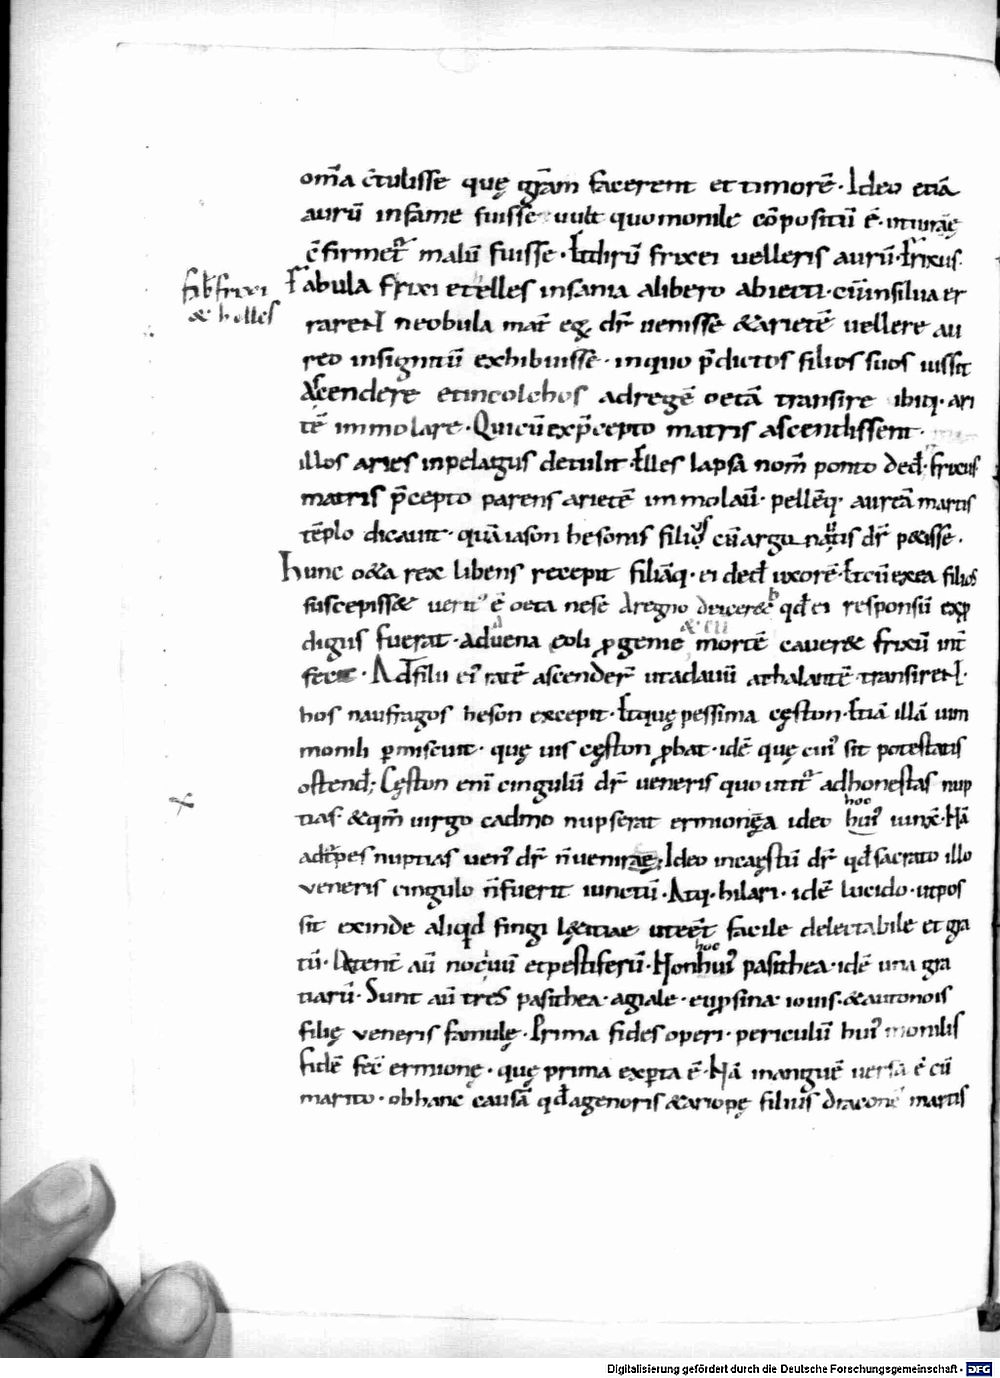 om̄a c̄tulisse quę gr̄am facerent et timorē. Ideo etiā
aurū infame fuisse uult quo monile cōpositū ē. ut iurāe
c̄firmet᷑ malū fuisse. frixei uelleris aurū. Frixus
fab frixi
& helles
Fabula frixi et elles insania a libero abiecti. cū in silua er
rarent neobula mat̄ eoꝝ dr̄ uenisse & arietē uellere au
reo insignitū exhibuisse. in quo p̄dictos filios suos iussit
ascendere et in colchos ad regē oetā transire ibiq. ari
tē immolare. Qui cū ex p̄cepto matris ascendissent.
illos aries in pelagus detulit. elles lapsa nom̄ ponto ded̄. frixus
matris p̄cepto parens arietē immolau̅. pellēq. aureā martis
tēplo dicauit. quā iason hesonis filius cū argu natis dr̄ petisse.
Hunc oeta rex libens recepit filiāq. ei ded̄ uxorē. cū ex ea filios
suscepisset ueritꝰ ē oeta ne se de regno deicerēt qd̄ ei responsū exp
digiis fuerat. aduena eoli progenie mortē caueret frixū int̄
& cū
fecit. Ad filii eiꝰ ratē ascender̄ ut ad auū athalantē transirent.
hos naufragos heson excepit. quę pessima cęston. etiā illā uim
monili p̄miscuit. quę uis cęston probat. idē quę eiuꝰ sit potestatis
ostend̄; Cęston enī cingulū dr̄ ueneris quo utit᷑ ad honestas nup
hoc
tias. & qm̄ uirgo cadmo nupserat ermiongęa ideo huiꝰ iunx̄. Nā
ad t̄pes nuptias uenꝰ dr̄ n̄ uenirae; Ideo incaęstū dr̄ qd̄ sacrato illo
veneris cingulo n̄ fuerit iunctū. Atq. hilari. idē lucido. ut pos
sit exinde aliqd̄ fingi lętitiae ut eēt facile delectabile et gra
hoc
tū. Lętent̄ aū nociuū et pestiferū. Non huiꝰ pasithea. idē una gra
tiarū. Sunt aū tres pasithea. agiale. euprsina iouis. & autonois
filię veneris famulę. Prima fides operi. periculū huiꝰ monilis
fidē fec̄ ermionę. quę prima experta ē. Nā in anguē uersa ē cū
marito. ob hanc causā qd̄ agenoris & ariopę filius draconē martis
Digitalisierung gefördert durch die Deutsche Forschungsgemeinschaft - DFG